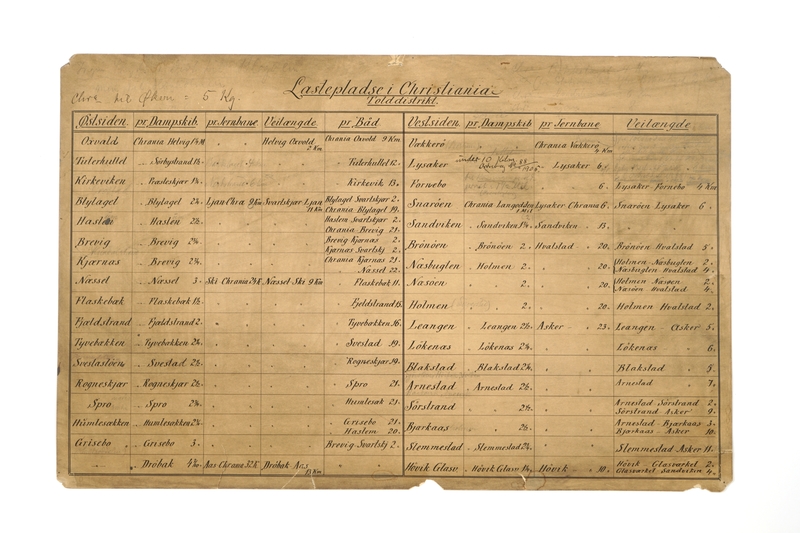 Chra = 5 Kg.
Lastepladse i Christiania
Tolddistrikt.
Østsiden pr. Dampskib. pr Jernbane. Veilængde pr. Båd. Vestsiden pr. Dampskib pr Jernbane Veilængde
Oxvald Chrania Helvig Helvig Oxvold 2 Km Chrania Oxvold 9 Km Vækkerö Chrania Vækkerö 4 Km
Tüterhullet " Tüterhullet 12. Lysaker 10 1905 Lysaker 6.
Kirkeviken " Kirkevik 13. Fornebo " 6. Lysaker Fornebo 4 Km
Blylaget " Blylaget 2¼. Ljan Chra 9 Km Svartskjær Ljan 11 Km Blylaget Svartskjær 2. Snaröen Chrania Langodden Lysaker Chrania 6. Snaröen Lysaker 6.
Chrania Blylaget 19.
Haslen " Haslen 2½. Haslem Svartskjær 2. Sandviken " Sandviken Sandviken " 13.
Chrania Brevig 21.
Brevig " Brevig 2¼. Brevig Kjærnæs 2. Brönöen " Brönöen 2. Hvalstad " 20. Brönöen Hvalstad 5.
Kjærnæs Svartskj 2.
Kjærnas " Brevig 2¼. Chrania Kjærnes 21. Næsbuglen " Holmen 2. " 20. Holmen Næsbuglen 2.
Næssel 22. Næsbuglen Hvalstad 4.
Næssel " Næssel 3. Ski Chrania 24 K Næssel Ski 9 Km Flaskebæk 11. Næsöen " 2. " 20. Holmen Næsöen 2.
Næsöen Hvalstad 4.
Flaskebæk " Flaskebæk 1½. Fjeldstrand 15. Holmen " 2. " 20. Holmen Hvalstad 2.
Fjældstrand " Fjældstrand 2. Tyvebækken 16. Leangen " Leangen 2½. Asker " 23. Leangen Asker 5.
Tyvebækken " Tyvebækken 2¼. Svestad 19. Lökenæs " Lökenæs 2¼. Lökenæs " 6.
" Svestad 2½. Rogneskjær 19. Blakstad " Blakstad 2¼. Blakstad " 5.
Rogneskjær " Rogneskjær 2½. Spro 21. Arnestad " Arnestad 2½. Arnestad " 7.
Spro " Spro 2¾. Humlesæk 21. Sörstrand " 2½. Arnestad Sörstrand 2.
Sörstrand Asker 9.
Humlesækken " Humlesækken 2¾ Grisebo 21. Bjerkaas " 2½. Arnestad Bjærkaas 3.
Haslem 20. Bjærkaas Asker 10.
Grisebo " Grisebo 3. Brevig Svartskj 2. Slemmestad " Slemmestad 2¾. Slemmestad Asker 11.
" Dröbak Aas Chrania 32 K Dröbak Aas 13 Km Hövik Glasv. Hövik Glasv 1¼. Hövik " 10. Hövik Glasværket 2.
Glasværket Sandviken 4.